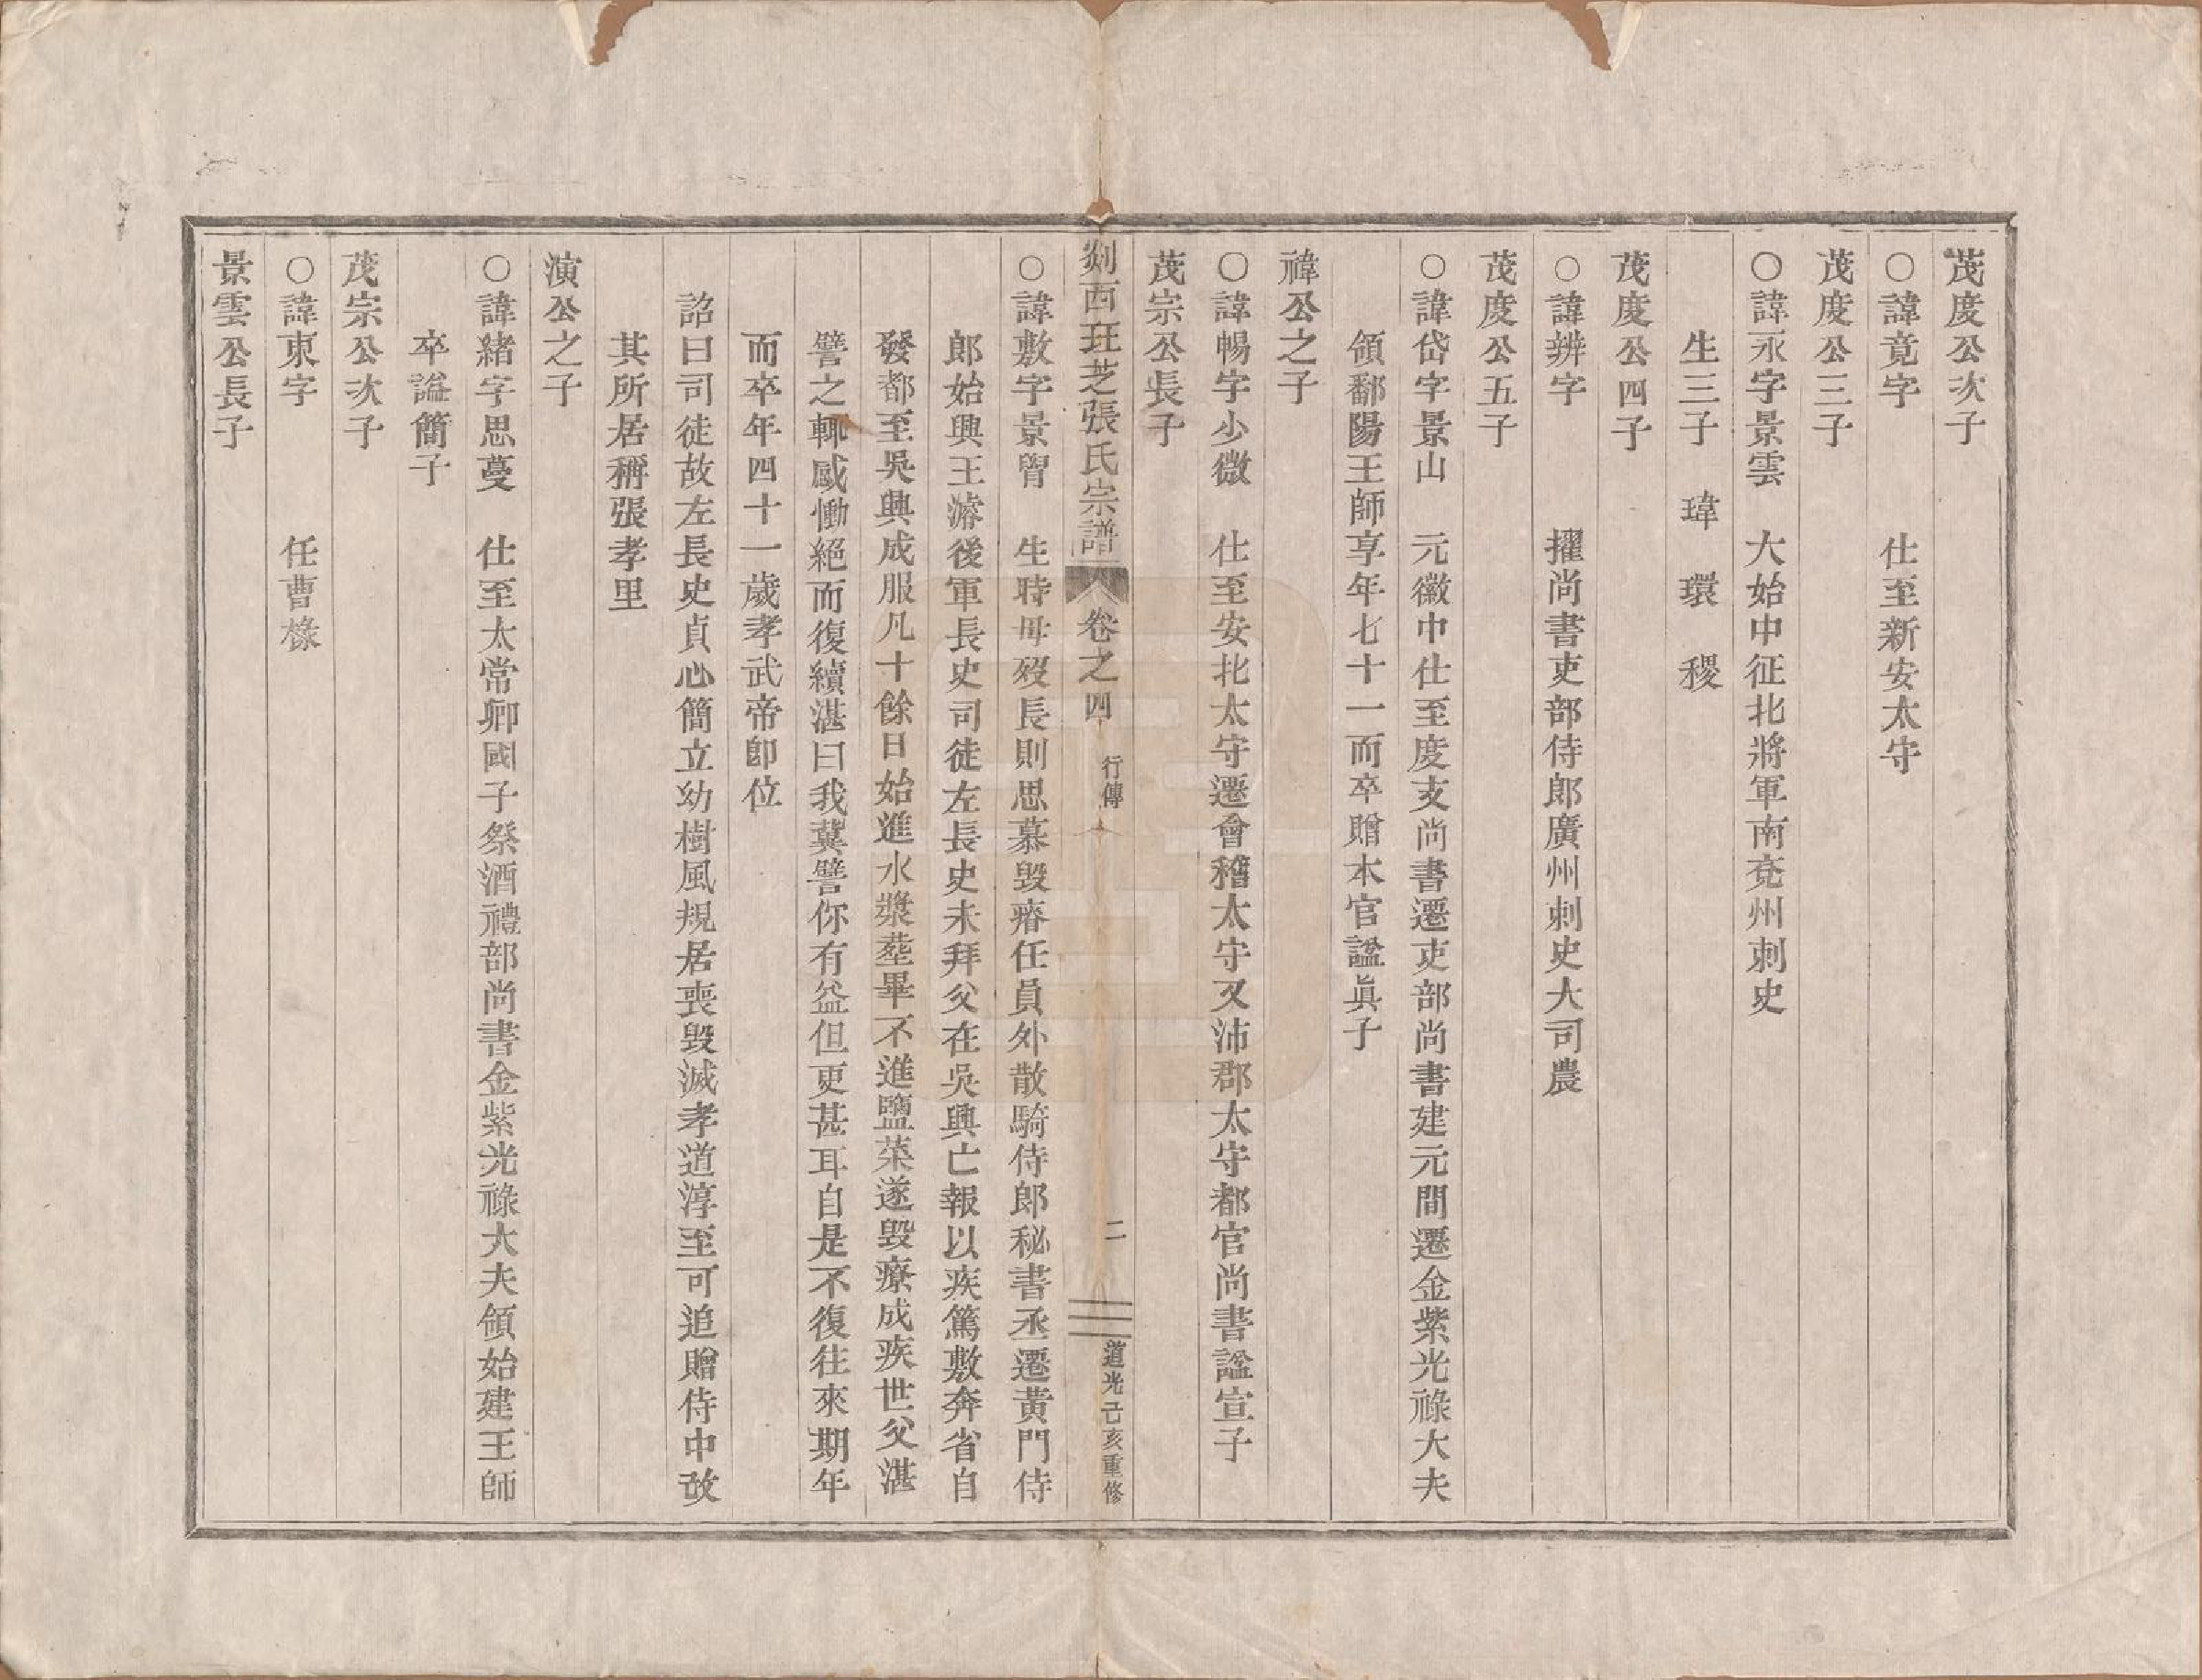 茂度公次子
○諱竟字　仕至新安太守
茂度公三子
○諱永字景雲　大始中征北將軍南兗州刺史
生三子　瑋　環　稷
茂度公四子
○諱辨字　擢尚書吏部侍郎廣州刺史大司農
茂度公五子
○諱岱字景山　元徽中仕至度支尚書遷吏部尚書建元間遷金紫光祿大夫
領鄱陽王師享年七十一而卒贈本官諡眞子
禕公之子
○諱暢字少微　仕至安北太守遷會稽太守又沛郡太守都官尚書諡宣子
茂宗公長子
剡西玨芝張氏宗譜　卷之四　行傳　二　道光己亥重修
○諱敷字景胷　生時母歿長則思慕毀瘠任員外散騎侍郎秘書丞遷黃門侍
郎始興王濬後軍長史司徒左長史未拜父在吳興亡報以疾篤敷奔省自
發都至吳興成服凡十餘日始進水漿塟畢不進鹽菜遂毀瘵成疾世父湛
譬之輒感慟絕而復續湛曰我冀譬你有益但更甚耳自是不復往來期年
而卒年四十一歲孝武帝即位
詔曰司徒故左長史貞心簡立幼樹風規居喪毀滅孝道淳至可追贈侍中改
其所居稱張孝里
演公之子
○諱緒字思蔓　仕至太常卿國子祭酒禮部尚書金紫光祿大夫領始建王師
卒諡簡子
茂宗公次子
○諱東字　任曹椽
景雲公長子